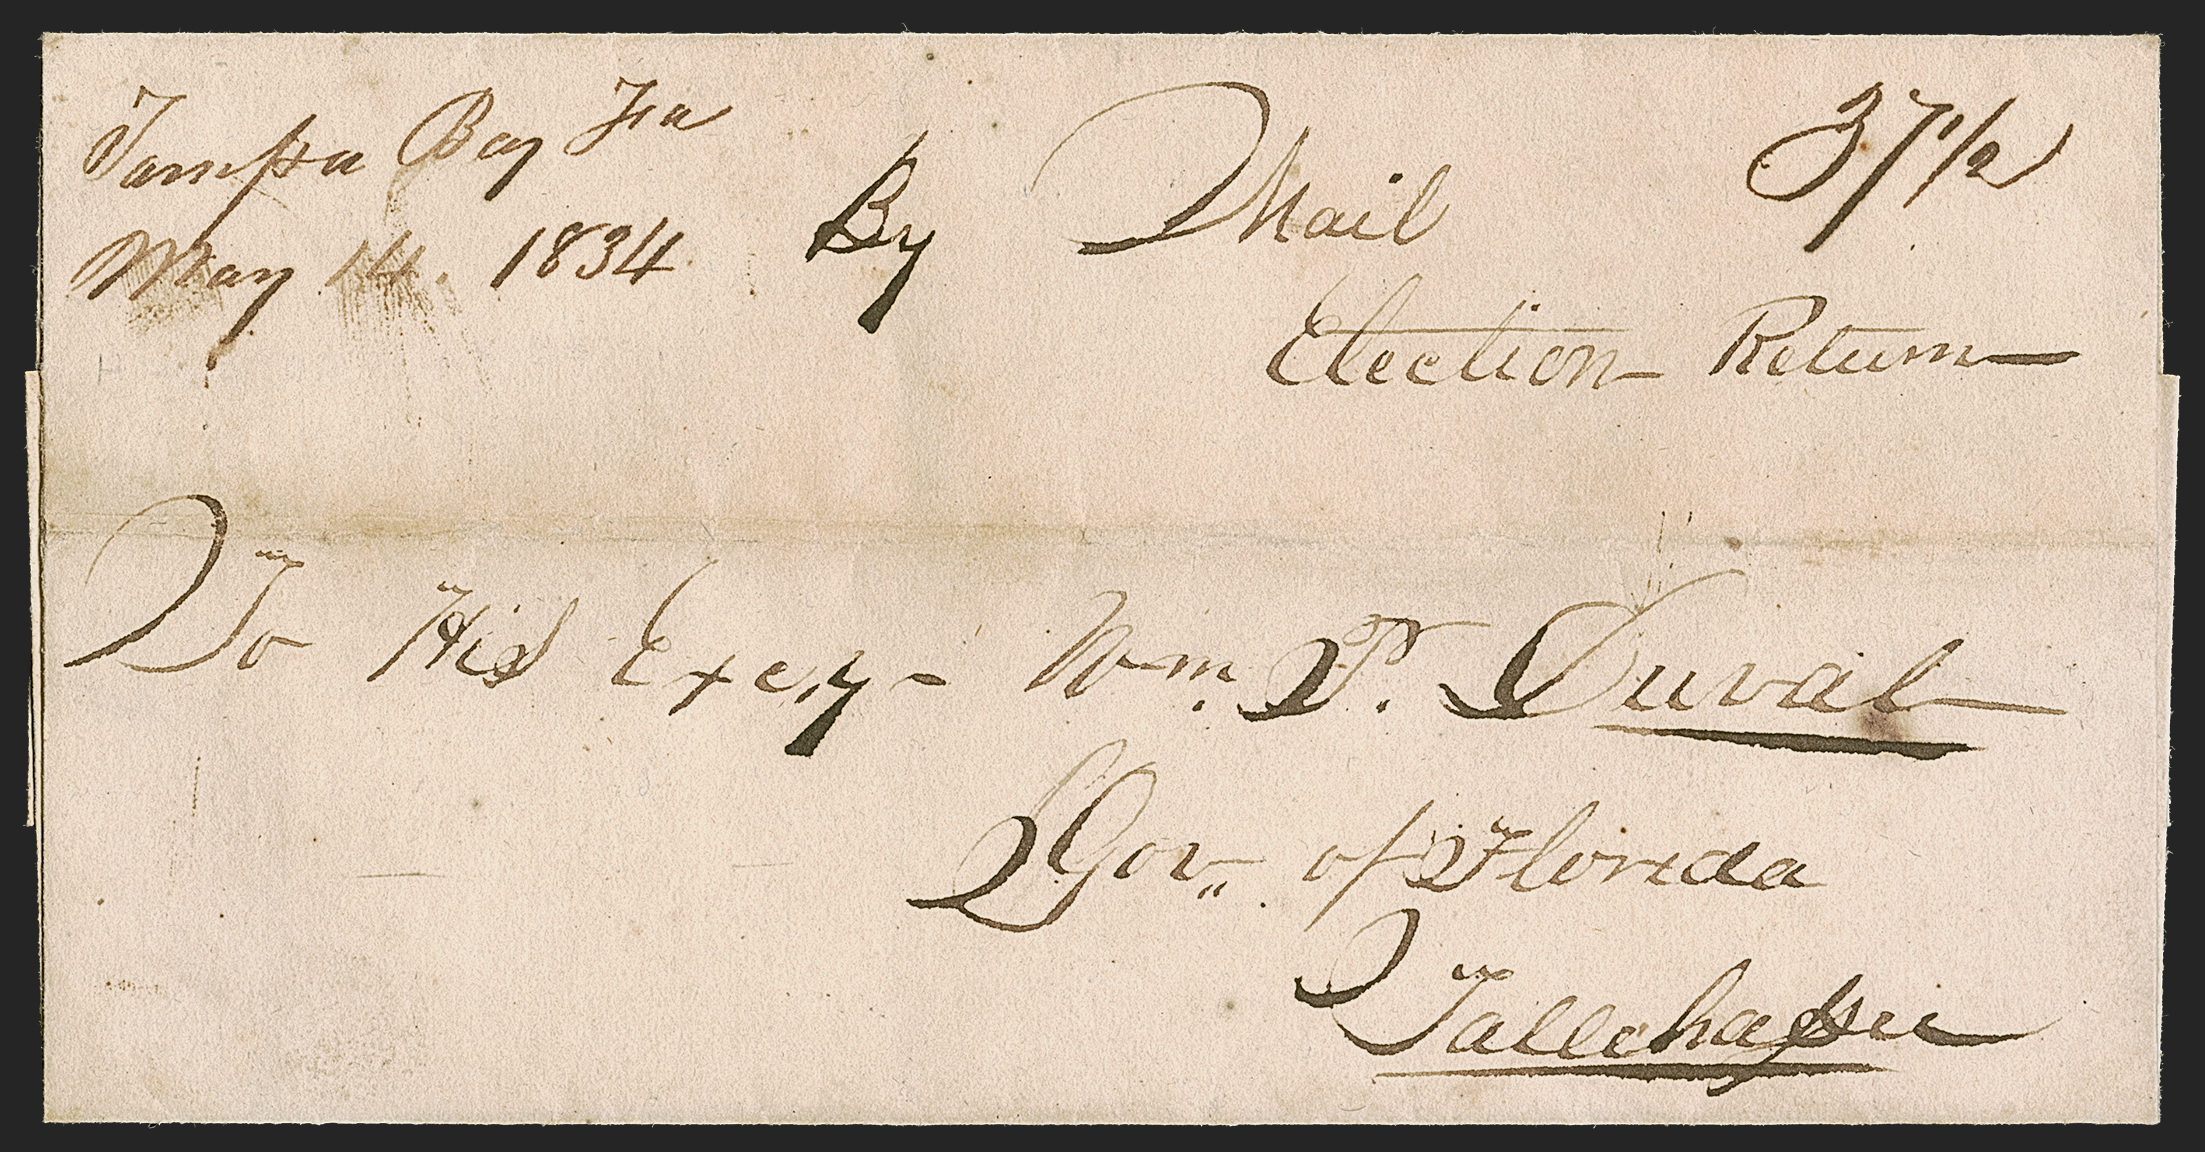 Tampa Bay Fla
May 14. 1834
By Mail
37 1/2
Election Return
To His Excy- Wm. P. Duval
Gov. of Florida
Tallehassee